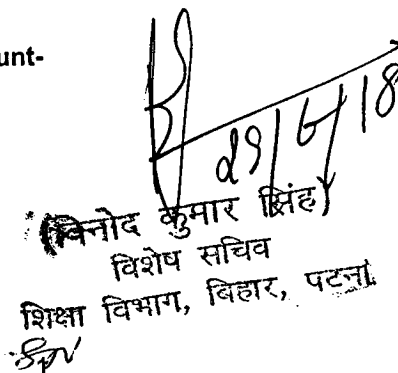 unt-
29/6/18
(विनोद कुमार सिंह)
विशेष सचिव
शिक्षा विभाग, बिहार, पटना